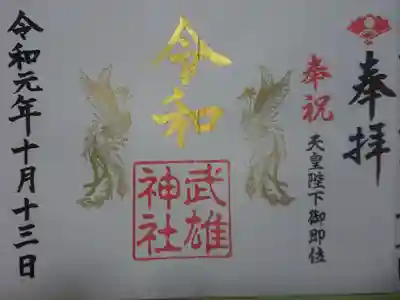 奉拝
奉祝
天皇陛下御即位
令和
武雄
神社
令和元年十月十三日